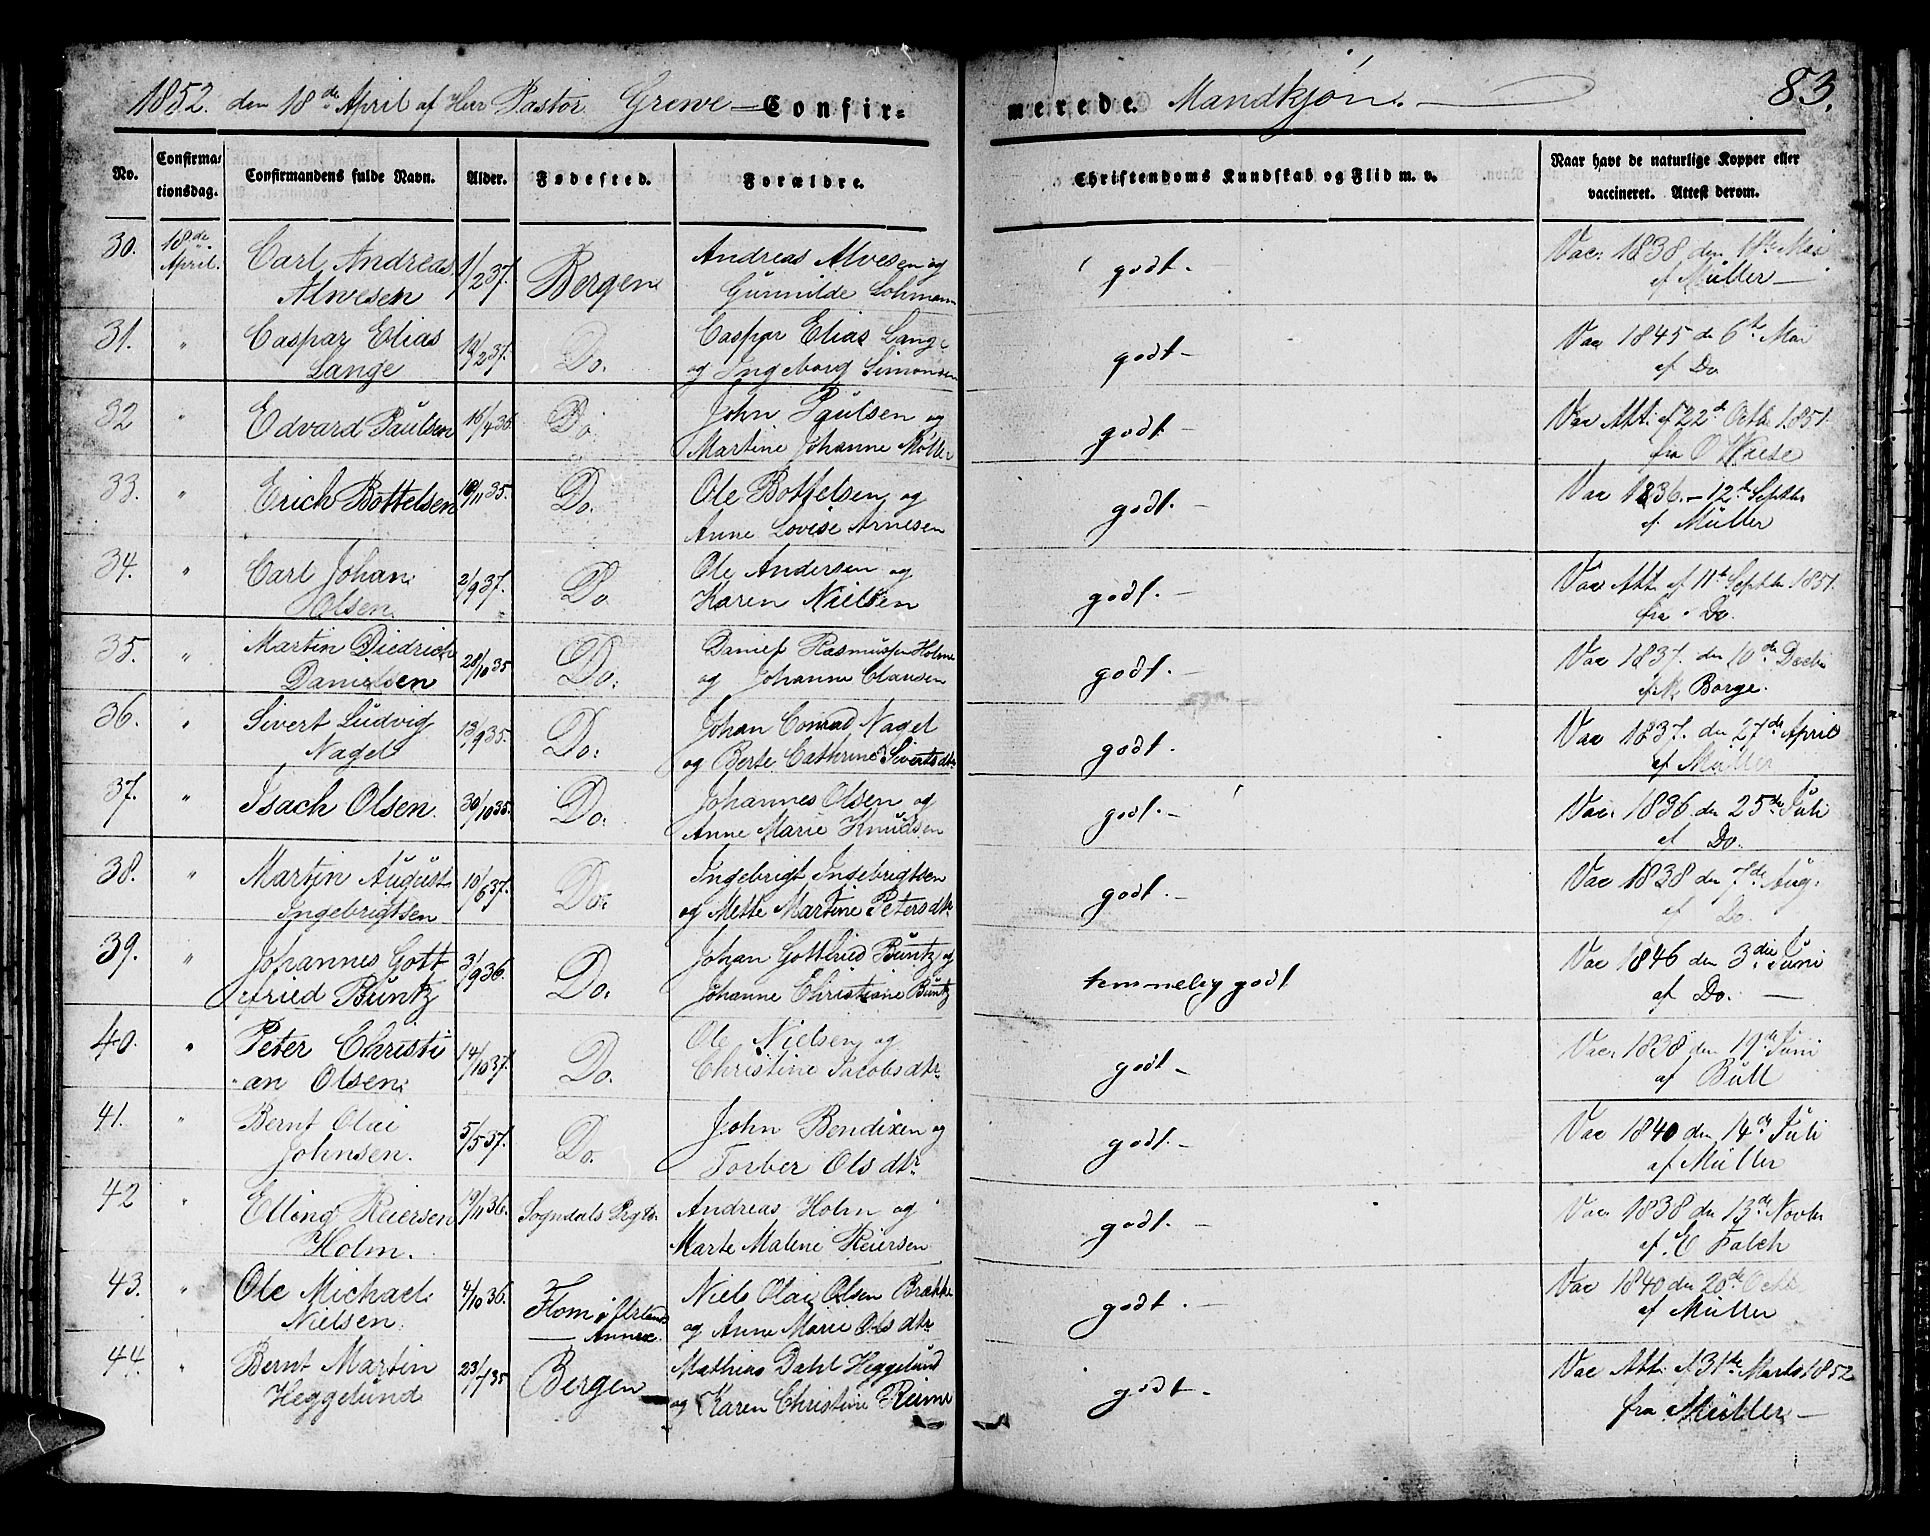 1852. den 18de April af Herr Pastor Grewe — Confir-
merede. Mandkjøn. — 83.
No. Confirma- tionsdag. Confirmandens fulde Navn. Alder. Fødested. Forældre. Christendoms Kundskab og Flid m. v. Naar havt de naturlige Kopper eller vaccineret. Attest derom.
30. 18de Carl Andreas 1/2 37. Bergen Andreas Alvesen og godt. - Vac. 1838 den Mai
April. Alwesen Gunnilde Lohmann af Müller —
31. " Caspar Elias 14/2 37. Do. Caspar Elias Lange godt - Vac 1845 de 6te Mai
Lange og Ingeborg Simonsen af Do
32 " Edvard Paulsen 15/4 36 Do John Paulsen og godt. - Vac Att. af 22de Octb 1851.
Martine Johanne Møller fra O
33. " Erich Bottelsen 10/11 35. Do. Ole Bottelsen og godt. - Vac 1836. - 12te Septbr
Anne Lovise Arnesen af. Müller
34. " Carl Johan 2/9 37. Do Ole Andersen og godt. - Vac Att. af 11te Septbr. 1851.
Olsen Karen Nielsen fra Do.
35. " Martin Diedrich 28/10 35 Do. Daniel Rasmusen Holme godt. - Vac 1837. den 10de Decbr
Danielsen og Johanne Clausen af Borge.
36. " Sivert Ludvig 13/9 35. Do. Johan Conrad Nagel godt. Vac 1837. den 27de April
Nagel og Berte Cathrine Sivertsdtr af Müller
37. " Isach Olsen. 30/10 35. Do. Johannes Olsen og godt. - Vac. 1836 den 25de Juli
Anne Marie Knudsen af Do.
38. " Martin August 10/6 37. Do. Ingebrigt Ingebrigtsen godt. - Vac 1838 den 7de Aug.
Ingebrigtsen og Mette Martine Petersdtr af Do.
39. " Johannes Gott 31/9 36. Do. Johan Gottfried Buntz og temmelig godt Vac 1846 den 3die Juni
fried Buntz Johanne Christiane Buntz af Do. —
40. " Peter Christi 14/10 37. Do. Ole Nielsen og godt - Vac. 1838 den 19de Juni
an Olsen. Christine Jacobsdtr af Bull
41. " Bernt Olai 5/5 37. Do. John Bendixen og godt. - Vac 1840 den 14de Juli
Johnsen. Torber Olsdtr af Müller
42 " Elling Reiersen 19/11 36. Sogndals Prgtd. Andreas Holm og godt. - Vac. 1838 den 13de Novbr
Holm. Marte Malene Reiersen af E Falch
43. " Ole Michael 4/10 36. Flom i Urlands Niels Olai Olsen Brække godt. - Vac 1840 den 20de Octb
Nielsen. — Annex. og Anne Marie Olsdtr af Müller
44. " Bernt Martin 23/7 35 Bergen Mathias Dahl Heggelund godt. - Vac Att. af 31te Marts 1852
Heggelund og Karen Christine Reimer fra Müller —